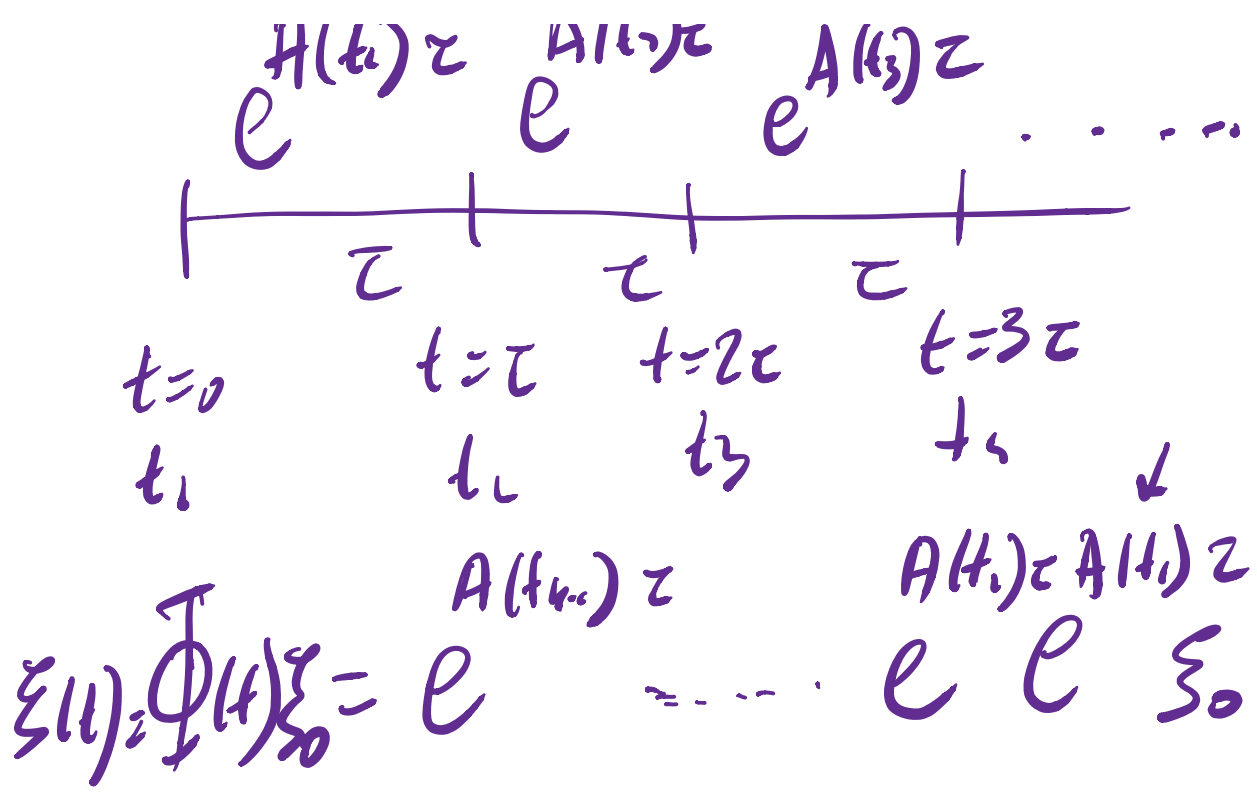 e^{A(t₁)τ} e^{A(t₂)τ} e^{A(t₃)τ} ....
τ τ τ
t=0 t=τ t=2τ t=3τ
t₁ t₂ t₃
ξ(t)=Φ(t)ξ₀ = e^{A(tₖ₋₁)τ} ..... e^{A(t₂)τ} e^{A(t₁)τ} ξ₀